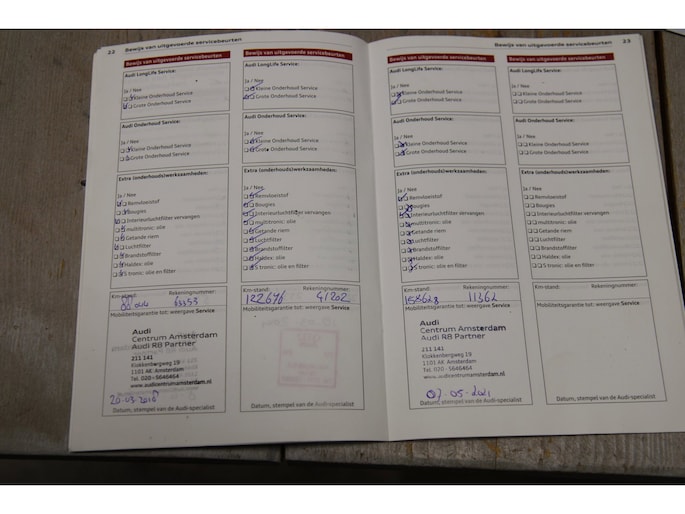 22 Bewijs van uitgevoerde servicebeurten
Bewijs van uitgevoerde servicebeurten
Audi LongLife Service:
Ja / Nee
Kleine Onderhoud Service
Grote Onderhoud Service
Audi Onderhoud Service:
Ja / Nee
Kleine Onderhoud Service
Grote Onderhoud Service
Extra (onderhouds)werkzaamheden:
Ja / Nee
Remvloeistof
Bougies
Interieurluchtfilter vervangen
multitronic: olie
Getande riem
Luchtfilter
Brandstoffilter
Haldex: olie
S tronic: olie en filter
Km-stand: Rekeningnummer:
Mobiliteitsgarantie tot: weergave Service
Audi
Centrum Amsterdam
Audi R8 Partner
211 141
Klokkenbergweg 19
1101 AK Amsterdam
Tel. 020 - 5646464
www.audicentrumamsterdam.nl
Datum, stempel van de Audi-specialist
Bewijs van uitgevoerde servicebeurten
Audi LongLife Service:
Ja / Nee
Kleine Onderhoud Service
Grote Onderhoud Service
Audi Onderhoud Service:
Ja / Nee
Kleine Onderhoud Service
Grote Onderhoud Service
Extra (onderhouds)werkzaamheden:
Ja / Nee
Remvloeistof
Bougies
Interieurluchtfilter vervangen
multitronic: olie
Getande riem
Luchtfilter
Brandstoffilter
Haldex: olie
S tronic: olie en filter
Km-stand: Rekeningnummer:
122676 41202
Mobiliteitsgarantie tot: weergave Service
Datum, stempel van de Audi-specialist
Bewijs van uitgevoerde servicebeurten 23
Bewijs van uitgevoerde servicebeurten
Audi LongLife Service:
Ja / Nee
Kleine Onderhoud Service
Grote Onderhoud Service
Audi Onderhoud Service:
Ja / Nee
Kleine Onderhoud Service
Grote Onderhoud Service
Extra (onderhouds)werkzaamheden:
Ja / Nee
Remvloeistof
Bougies
Interieurluchtfilter vervangen
multitronic: olie
Getande riem
Luchtfilter
Brandstoffilter
Haldex: olie
S tronic: olie en filter
Km-stand: Rekeningnummer:
11362
Mobiliteitsgarantie tot: weergave Service
Audi
Centrum Amsterdam
Audi R8 Partner
211 141
Klokkenbergweg 19
1101 AK Amsterdam
Tel. 020 - 5646464
www.audicentrumamsterdam.nl
07-05-2021
Datum, stempel van de Audi-specialist
Bewijs van uitgevoerde servicebeurten
Audi LongLife Service:
Ja / Nee
Kleine Onderhoud Service
Grote Onderhoud Service
Audi Onderhoud Service:
Ja / Nee
Kleine Onderhoud Service
Grote Onderhoud Service
Extra (onderhouds)werkzaamheden:
Ja / Nee
Remvloeistof
Bougies
Interieurluchtfilter vervangen
multitronic: olie
Getande riem
Luchtfilter
Brandstoffilter
Haldex: olie
S tronic: olie en filter
Km-stand: Rekeningnummer:
Mobiliteitsgarantie tot: weergave Service
Datum, stempel van de Audi-specialist